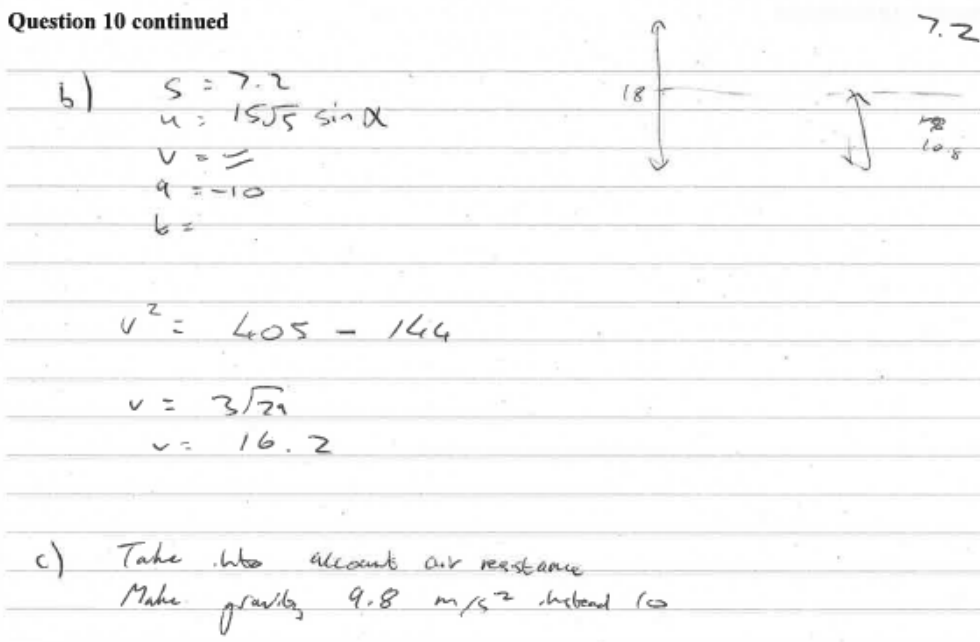 Question 10 continued
7.2
b) s = 7.2
18
u = 15√5 sin α
10.8
v = =
a = -10
t =
v² = 405 - 144
v = 3√29
v = 16.2
c) Take into account air resistance
Make gravity 9.8 m/s² instead 10